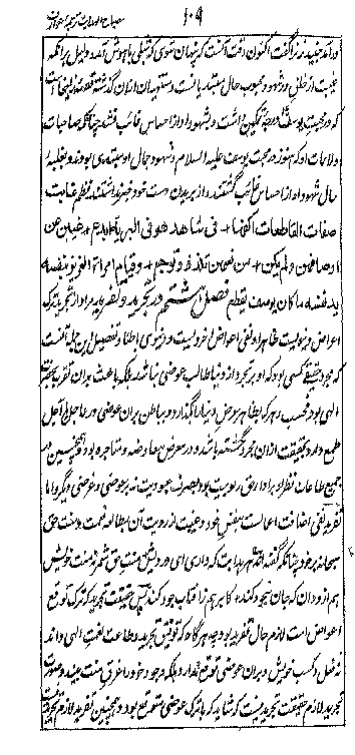 مصباح الهدایت ترجمه عوارف
۱۰۹
درآمد جنید زنز گفت اکنون آفت آنست که پنهان شوی کو شبلی باهوش آمد و دلیل بر آنکه
غیبت از خلق در شهود محبوب حال مبتدیانست و منتهیان ازان گذشته قصه زلیخاست
که در محبت یوسف درجه تمکین داشت و شهود او از احساس غائب نشد چنانکه صاحبات
ولائمات او که هنوز در محبت یوسف علیه السلام و شهود جمال او مبتدی بودند و بغلبه
حال شهود او از احساس غائب گشتند و از بریدن دست خود خبر نداشتند نظم غابت
صفات القاطعات اکفها + فی شاهد هو فی البریة ابدع + غبن عن
اوصافهن ولم یکن + من نعتهن تلذذ وتوجع + وقیام امراة العزیز بنفسه
ید نفسه ما کان یوسف یقطع فصل هشتم در تجرید و تفرید مراد از تجرید ترک
اعراض دنیویست ظاهرا و نفی اعواض اخرویست و دنیوی باطنا و تفصیل این جمله آنست
که مجرد حقیقی کسی بود که او بر تجرد از دنیا طالب عوضی نباشد بلکه باعث بران تقرب بحضرت
الهی بود فحسب و هر که بظاهر عرض دنیا را بگذارد و بباطن بران عوضی در عاجل یا آجل
طمع دارد بحقیقت ازان مجرد نگشته باشد و در معرض معاوضه و متاجره بود و همچنین در
جمیع طاعات نظر او بر ادای حق ربوبیت بود بصرف عبودیت نه بر عوضی و غرضی دیگر و اما
تفرید نفی اضافت اعمالست بنفس خود و غیبت از رویت آن بمطالعه نعمت و منت حق
سبحانه بر خود چنانکه گفته اند هر بدایت که داری ای درویش منت حق شمر نه منت خویش
هم ازو دان که جان سجود کند + ابر هم ز آفتاب جود کند پس حقیقت تجرید که ترک توقع
اعواض است لازم حال تفرید بود چه هر گاه که توفیق تجرید و طاعت نعمت الهی داند
نه فعل و کسب خویش بر ان عوضی توقع ندارد بلکه وجود خود را غرق منت بیند و صورت
تجرید لازم حقیقت تجرید نیست که شاید که با ترک عوضی متوقع بود و همچنین تفرید لازم تجرید